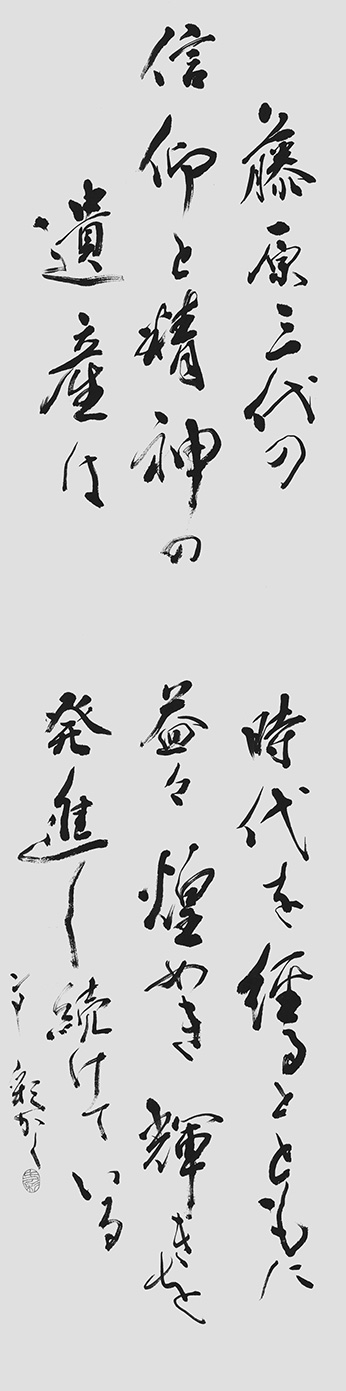 藤原三代の
信仰と精神の
遺産は
時代を経るとともに
益々煌めき輝きを
発進し続けている
かく